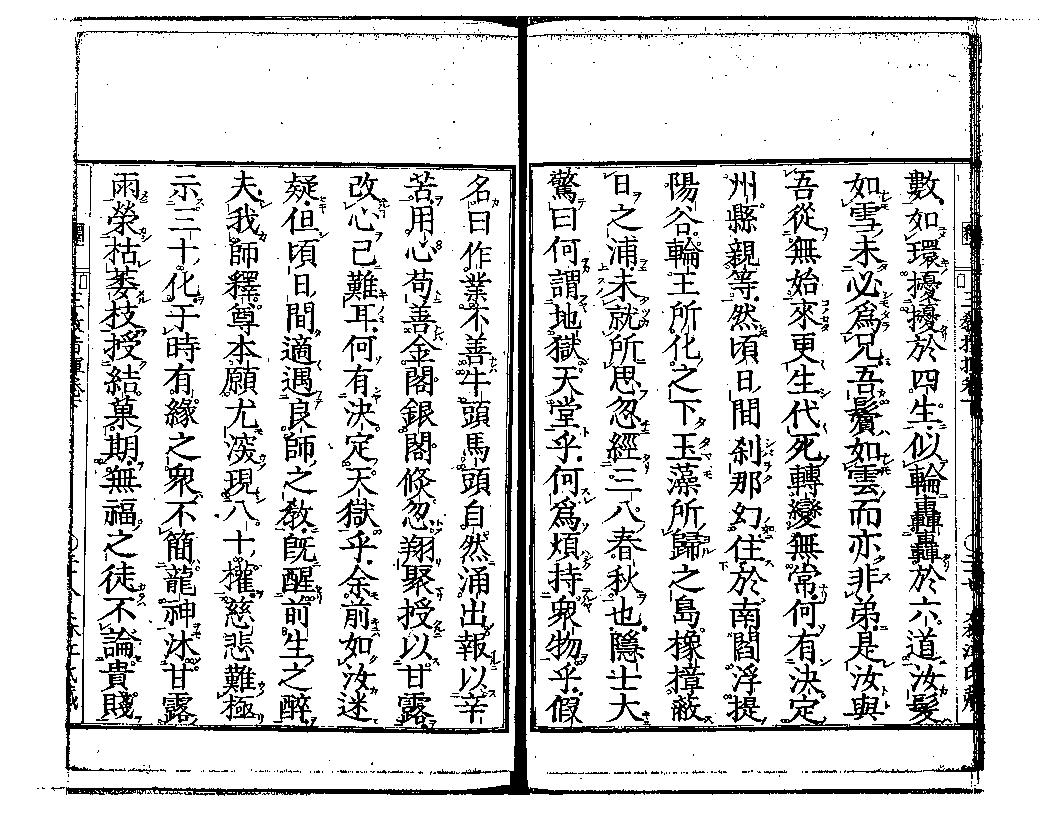 數如環擾擾於四生似輪轟轟於六道汝髮
如雪未必爲兄吾鬢如雲而亦非弟是汝與
吾從無始來更生代死轉變無常何有決定
州縣親等然頃日間刹那幻住於南閻浮提
陽谷輪王所化之下玉藻所歸之島橡樟蔽
日之浦未就所思忽經三八春秋也隱士大
驚曰何謂地獄天堂乎何爲煩持衆物乎假
名曰作業不善牛頭馬頭自然涌出報以辛
苦用心苟善金閣銀閣倐忽翔聚授以甘露
改心已難耳何有決定天獄乎余前如汝迷
疑但頃日間適遇良師之敎旣醒前生之醉
夫我師釋尊本願尤深現八十權慈悲難極
示三十化于時有緣之衆不簡龍神沐甘露
雨榮枯萎枝授結菓期無福之徒不論貴賤